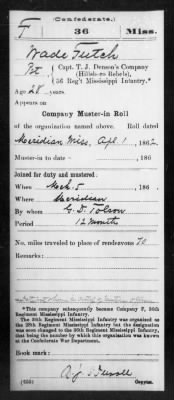 (Confederate.)
F 36 Miss.
Wade Futch
Pvt., Capt. T. J. Denson's Company
(Hillsboro Rebels),
36 Reg't Mississippi Infantry.*
Age 28 years.
Appears on
Company Muster-in Roll
of the organization named above. Roll dated
Meridian Miss, Apl 1, 1862
Muster-in to date , 186
Joined for duty and mustered:
When Mch 5, 186 .
Where Meridian
By whom G. D. Tolson
Period 12 Month
No. miles traveled to place of rendezvous 70
Remarks:
*This company subsequently became Company F, 36th
Regiment Mississippi Infantry.
The 36th Regiment Mississippi Infantry was organized as
the Regiment Mississippi Infantry but the designation
was soon changed to the 36th Regiment Mississippi Infantry, that
being the number by which this organization was known at
the Confederate War Department.
Book mark:
(635) Copyist.